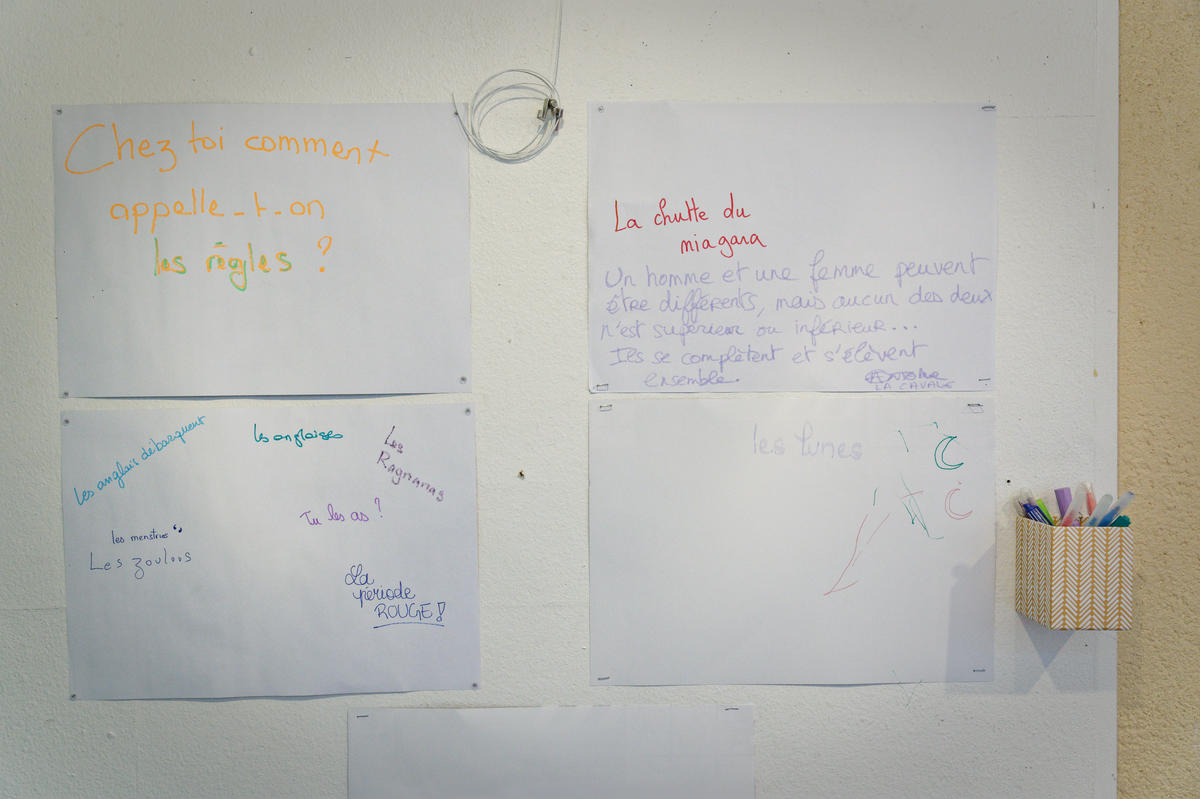 Chez toi comment
appelle-t-on
les règles ?
La chutte du
niagara
Un homme et une femme peuvent
être différents, mais aucun des deux
n'est supérieur ou inférieur...
Ils se complètent et s'élèvent
ensemble.
LA CAVALE
les anglais débarquent
les anglaises
Les
Ragnanas
Tu les as ?
les menstrues
Les zoulous
La
période
ROUGE !
les lunes